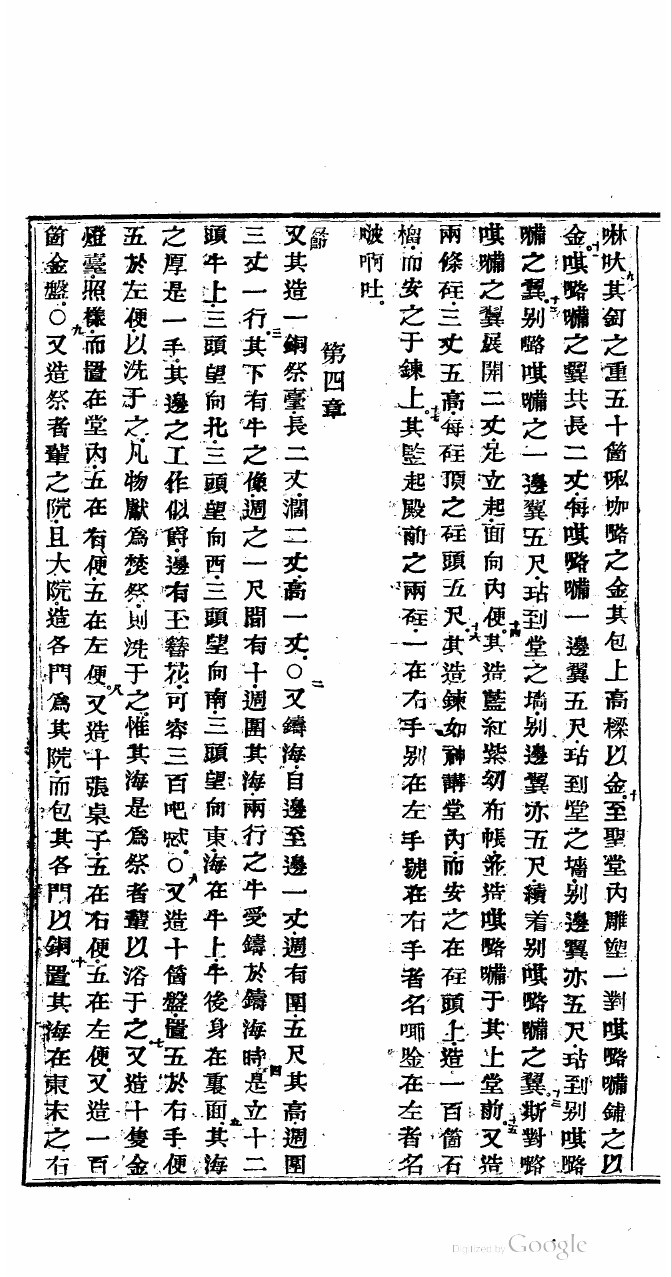 啉吠其釘之重五十箇𠸄咖嚧之金其包上高樑以金至聖堂內雕塑一對㖵嚧㘔鋪之以
金㖵嚧㘔之翼共長二丈每㖵嚧㘔一邊翼五尺玷到堂之墙別邊翼亦五尺玷到別㖵嚧
㘔之翼別嚧㖵㘔之一邊翼五尺玷到堂之墙別邊翼亦五尺續着別㖵嚧㘔之翼斯對嚧
㖵㘔之翼展開二丈足立起面向內便其造藍紅紫幼布帳並造㖵嚧㘔于其上堂前又造
兩條砫三丈五高每砫頂之砫頭五尺其造鍊如神講堂內而安之在砫頭上造一百箇石
榴而安之于鍊上其竪起殿前之兩砫一在右手別在左手號在右手者名㖿𡁷在左者名
㗶啊吐
第四章
節
又其造一銅祭臺長二丈濶二丈高一丈○又鑄海自邊至邊一丈週有圍五尺其高週圍
三丈一行其下有牛之像週之一尺間有十週圍其海兩行之牛受鑄於鑄海時是立十二
頭牛上三頭望向北三頭望向西三頭望向南三頭望向東海在牛上牛後身在裏面其海
之厚是一手其邊之工作似爵邊有玉簪花可容三百吧𡃤○又造十箇盤置五於右手便
五於左便以洗于之凡物獻為焚祭則洗于之惟其海是為祭者輩以浴于之又造十隻金
燈臺照樣而置在堂內五在右便五在左便又造十張桌子五在右便五在左便又造一百
箇金盤○又造祭者輩之院且大院造各門為其院而包其各門以銅置其海在東末之右
Digitized by Google